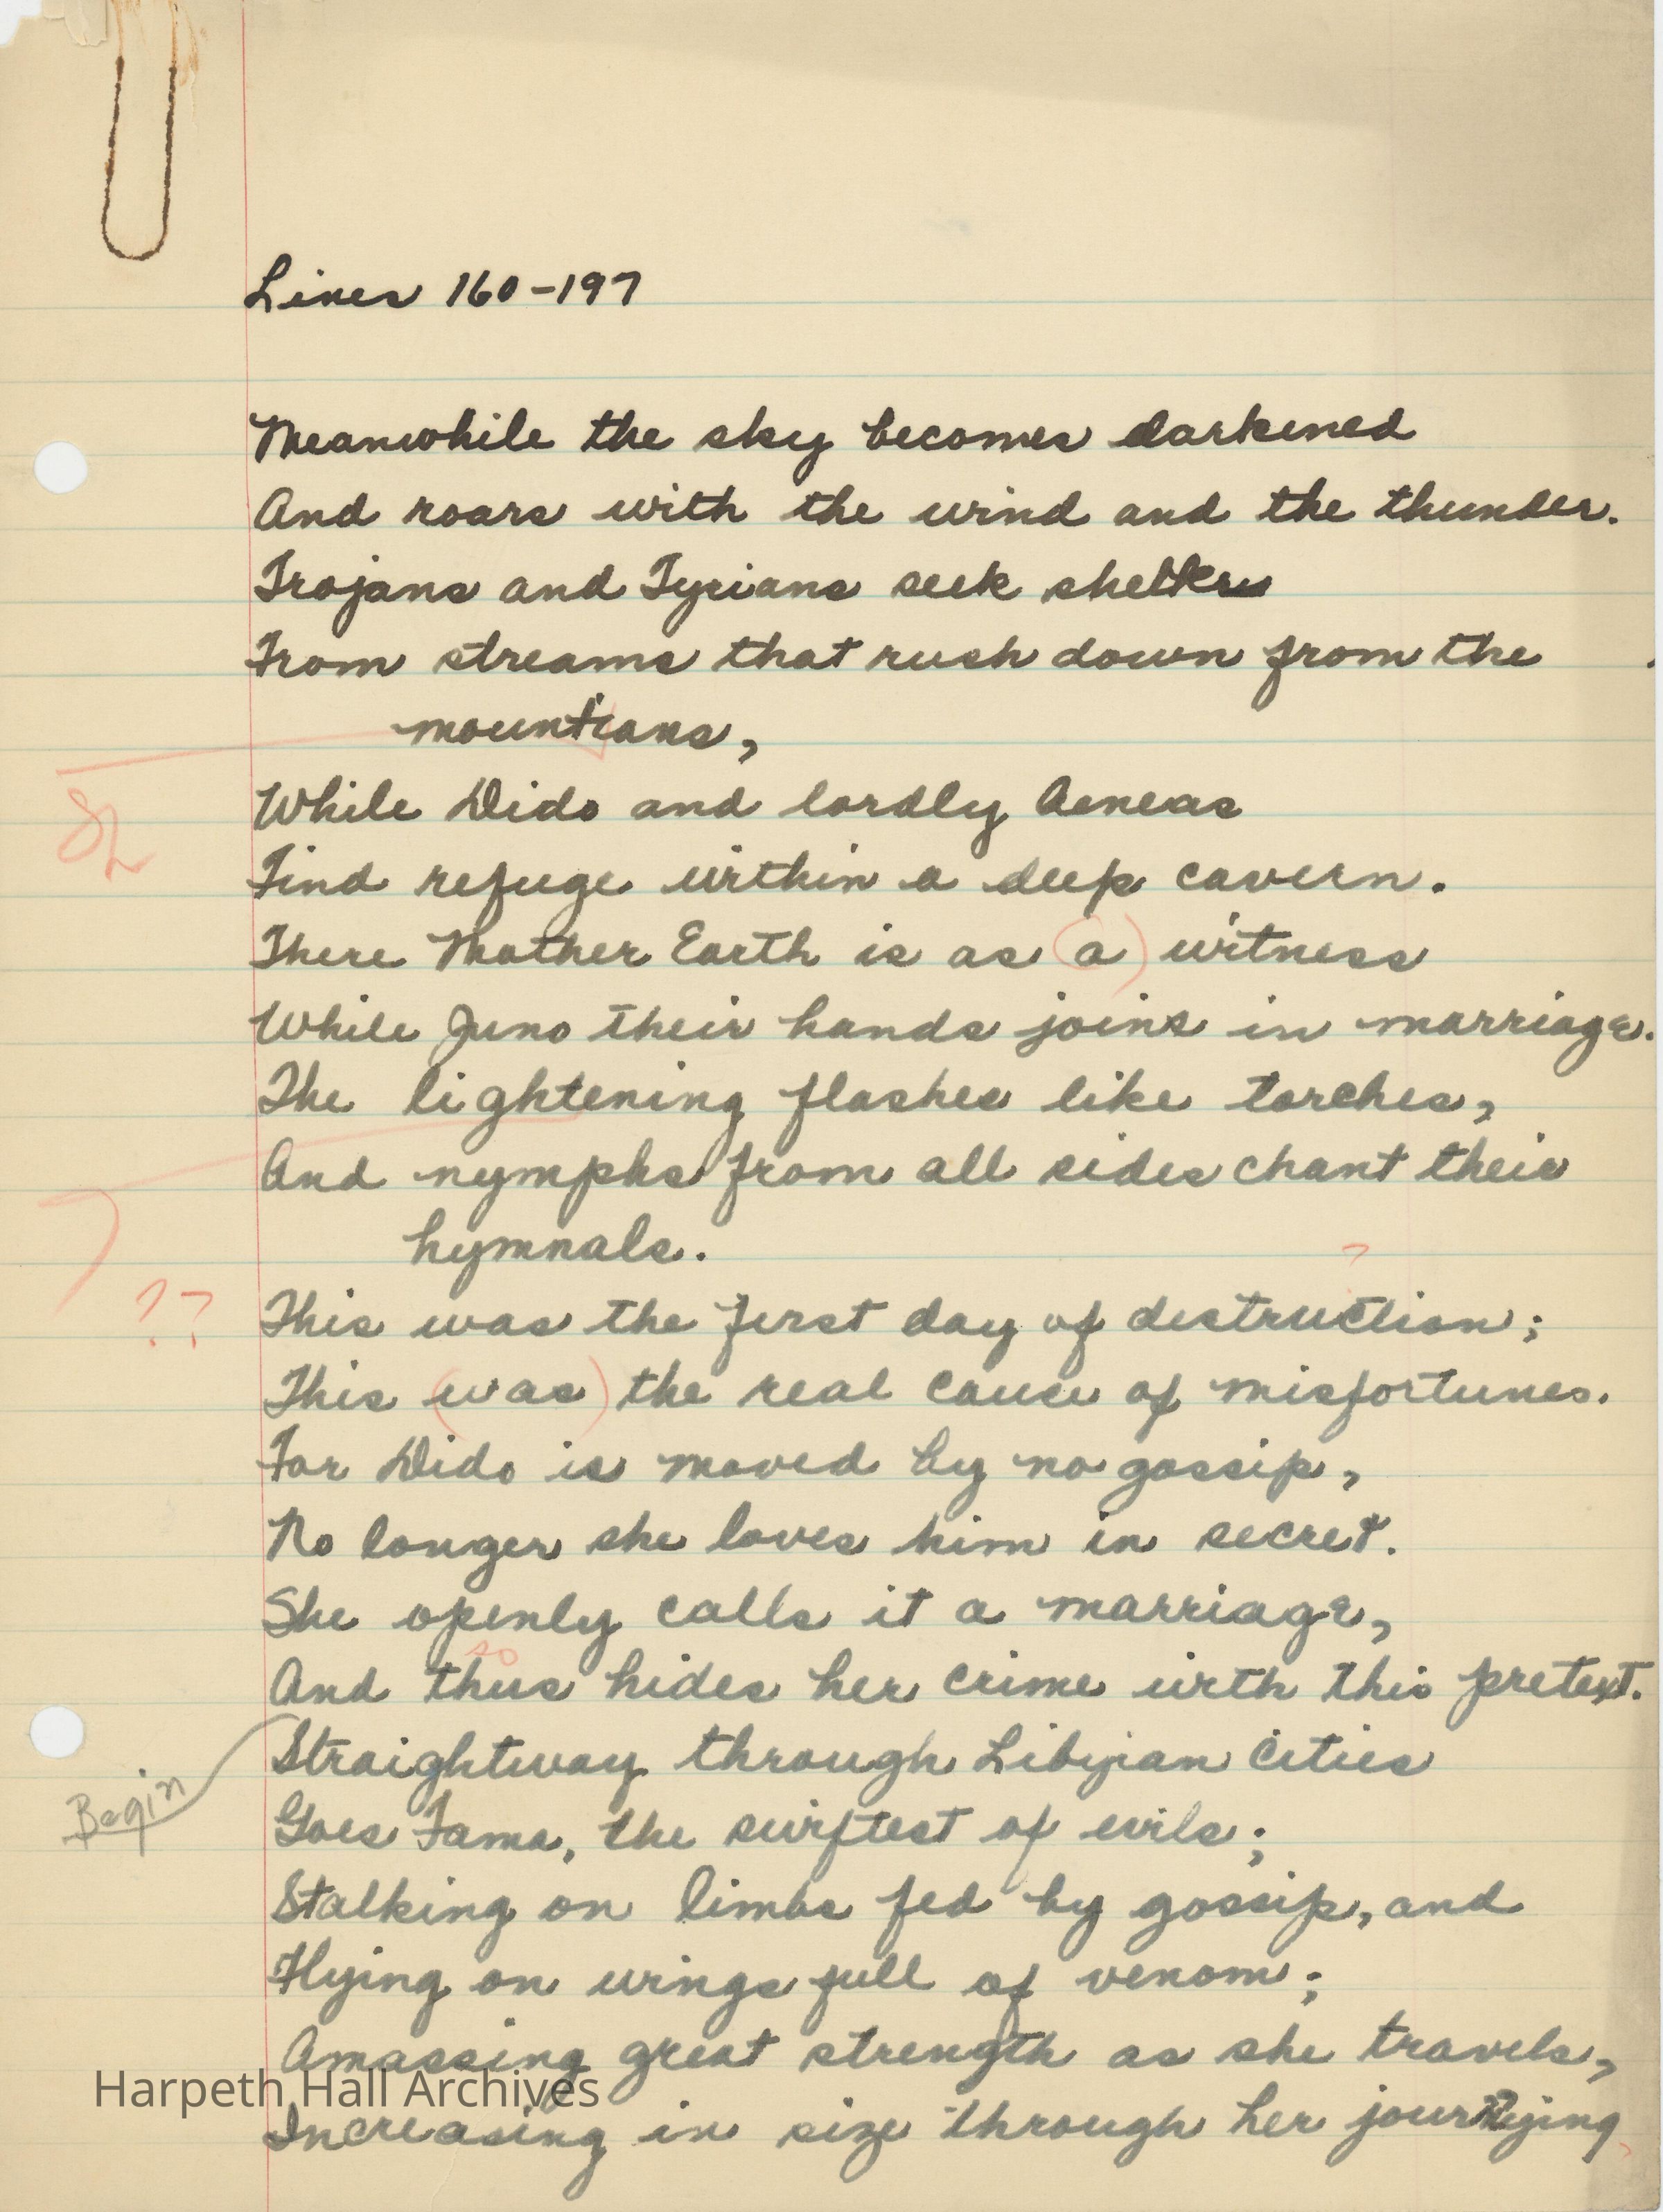 Lines 160-197
Meanwhile the sky becomes darkened
And roars with the wind and the thunder.
Trojans and Tyrians seek shelter
From streams that rush down from the
mountians,
While Dido and lordly Aeneas
Find refuge within a deep cavern.
There Mother Earth is as (a) witness
While Juno their hands joins in marriage.
The lightening flashes like torches,
And nymphs from all sides chant their
hymnals.
?
?? This was the first day of destruction;
This (was) the real cause of misfortunes.
For Dido is moved by no gossip,
No longer she loves him in secret.
She openly calls it a marriage,
so
And thus hides her crime with this pretext.
Straightway through Libyian cities
Begin
Goes Fama, the swiftest of evils;
Stalking on limbs fed by gossip, and
Flying on wings full of venom;
Amassing great strength as she travels,
Harpeth Hall Archives
Increasing in size through her